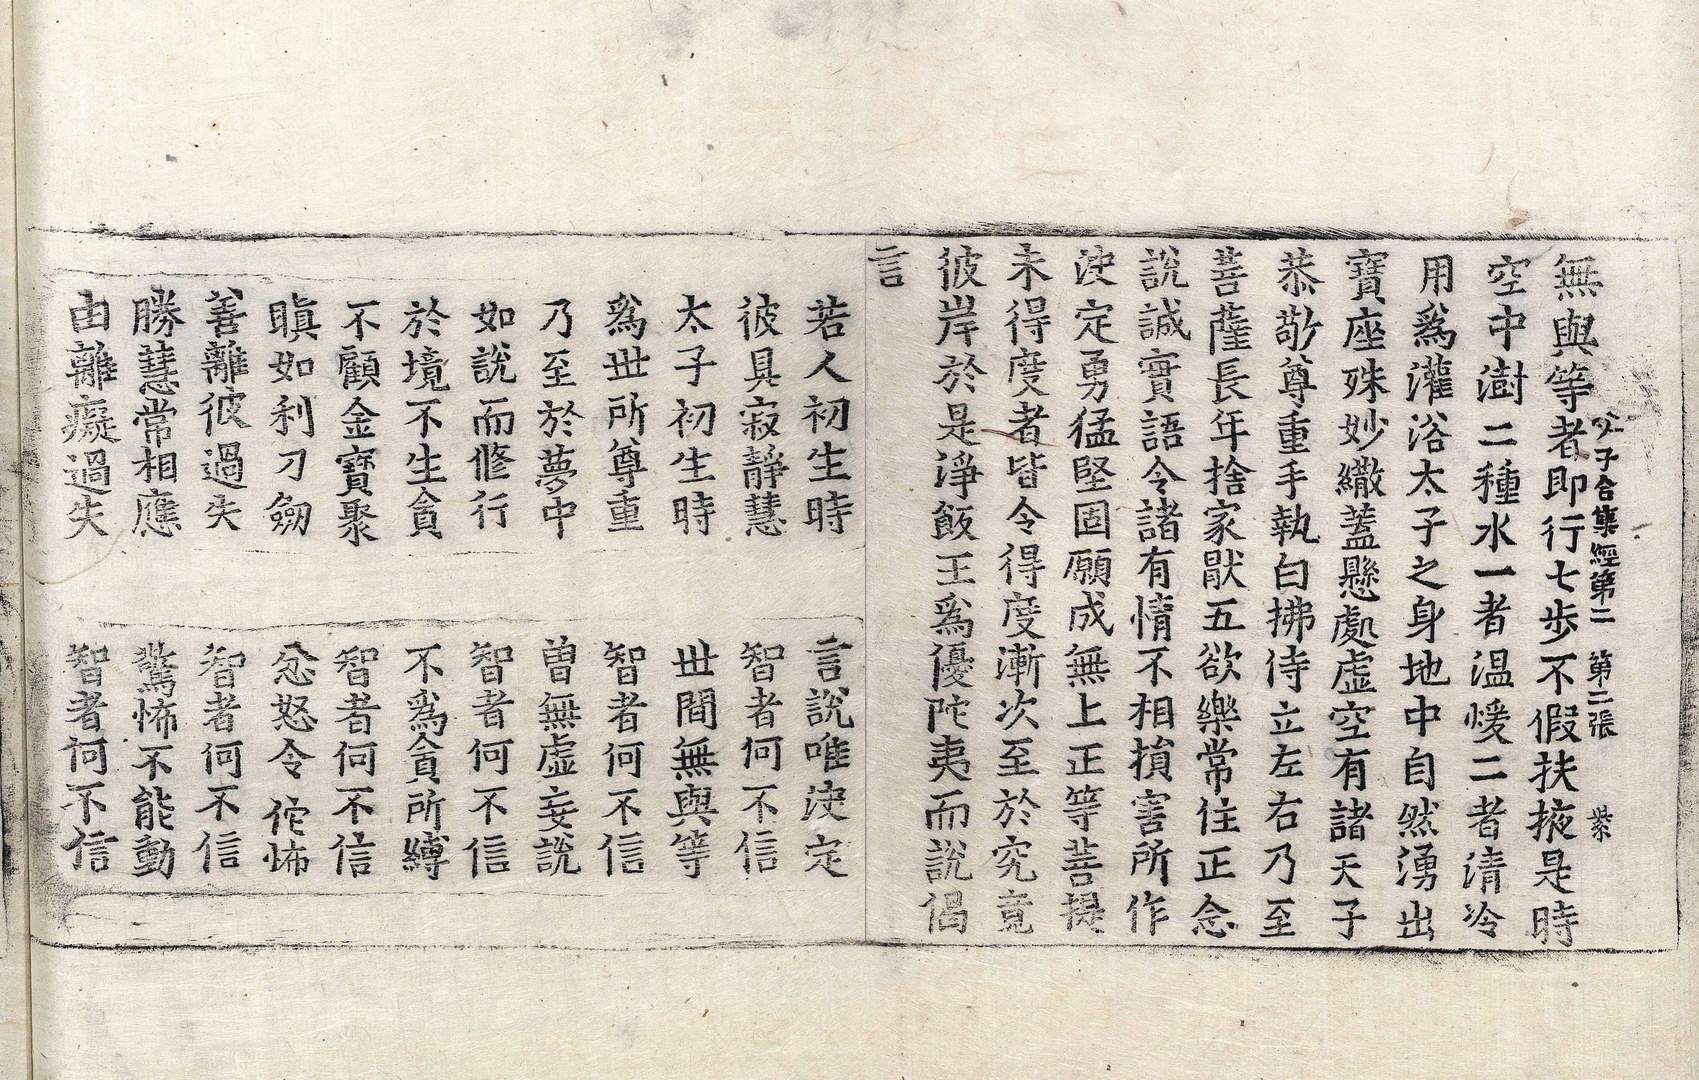 父子合集經第二　第二張　紫
無與等者即行七步不假扶掖是時
空中澍二種水一者温煖二者清冷
用爲灌浴太子之身地中自然湧出
寶座殊妙繖蓋懸處虛空有諸天子
恭敬尊重手執白拂侍立左右乃至
菩薩長年捨家猒五欲樂常住正念
說誠實語令諸有情不相損害所作
決定勇猛堅固願成無上正等菩提
未得度者皆令得度漸次至於究竟
彼岸於是淨飯王爲優陀夷而說偈
言
若人初生時　言說唯決定
彼具寂靜慧　智者何不信
太子初生時　世間無與等
爲世所尊重　智者何不信
乃至於夢中　曾無虛妄說
如說而修行　智者何不信
於境不生貪　不爲貪所縛
不顧金寶聚　智者何不信
瞋如利刀劒　忿怒令他怖
善離彼過失　智者何不信
勝慧常相應　驚怖不能動
由離癡過失　智者何不信